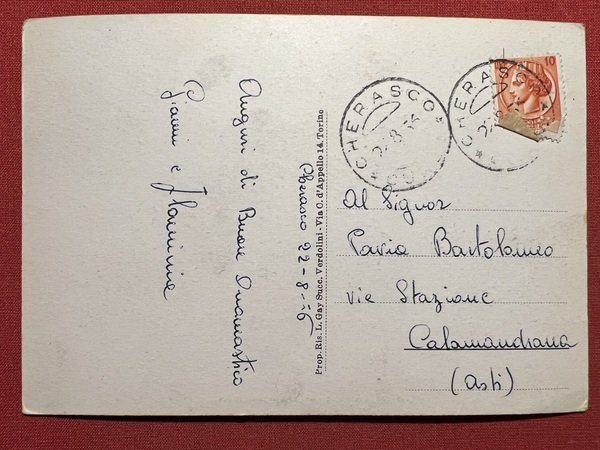 Auguri di Buon Onomastico
Gianni e Flaminia
Cherasco 22-8-56
Prop. Ris. L. Gay Succ. Verdolini - Via C. d'Appello 14, Torino
CHERASCO
CHERASCO
10
Al Signor
Pavia Bartolomeo
via Stazione
Calamandrana
(Asti)